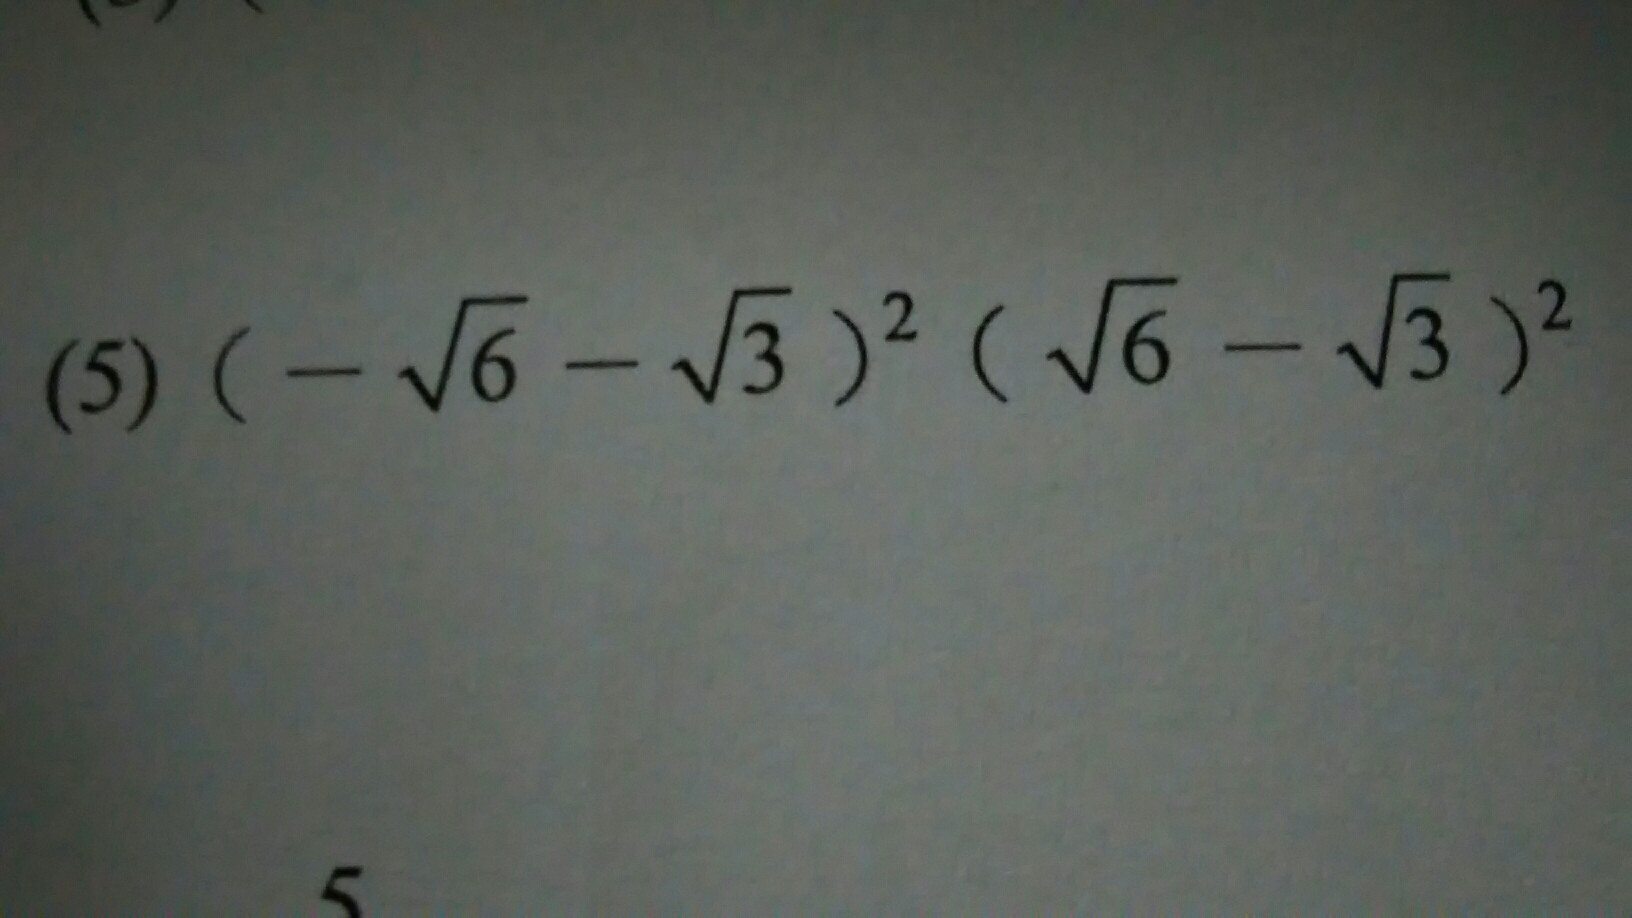 (5) ( − √6 − √3 )² ( √6 − √3 )²
5